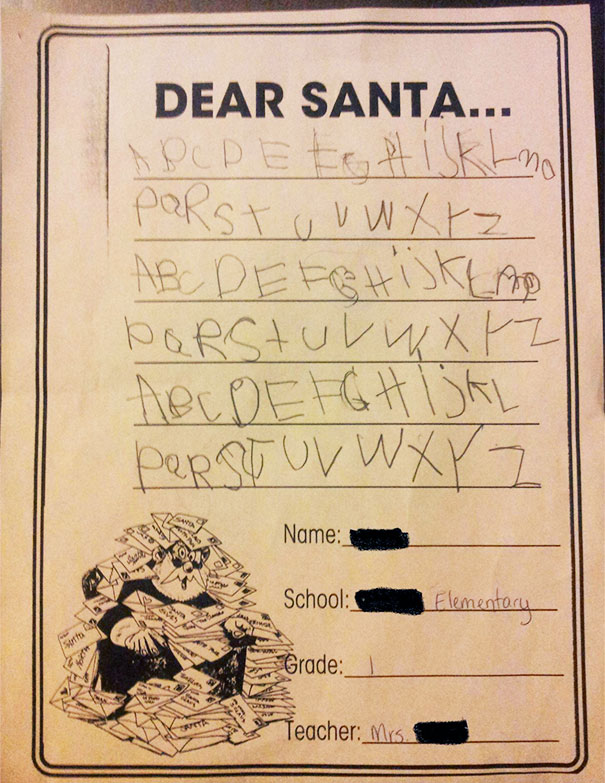 DEAR SANTA...
A B C D E F G H i j K L m o
P Q R S t U V W X Y Z
A B C D E F G H i j K L m o
P Q R S t U V W X Y Z
A B C D E F G H i j K L
P Q R S T U V W X Y Z
Name:
School: Elementary
Grade: 1
Teacher: Mrs.
SANTA
Santa
SANTA